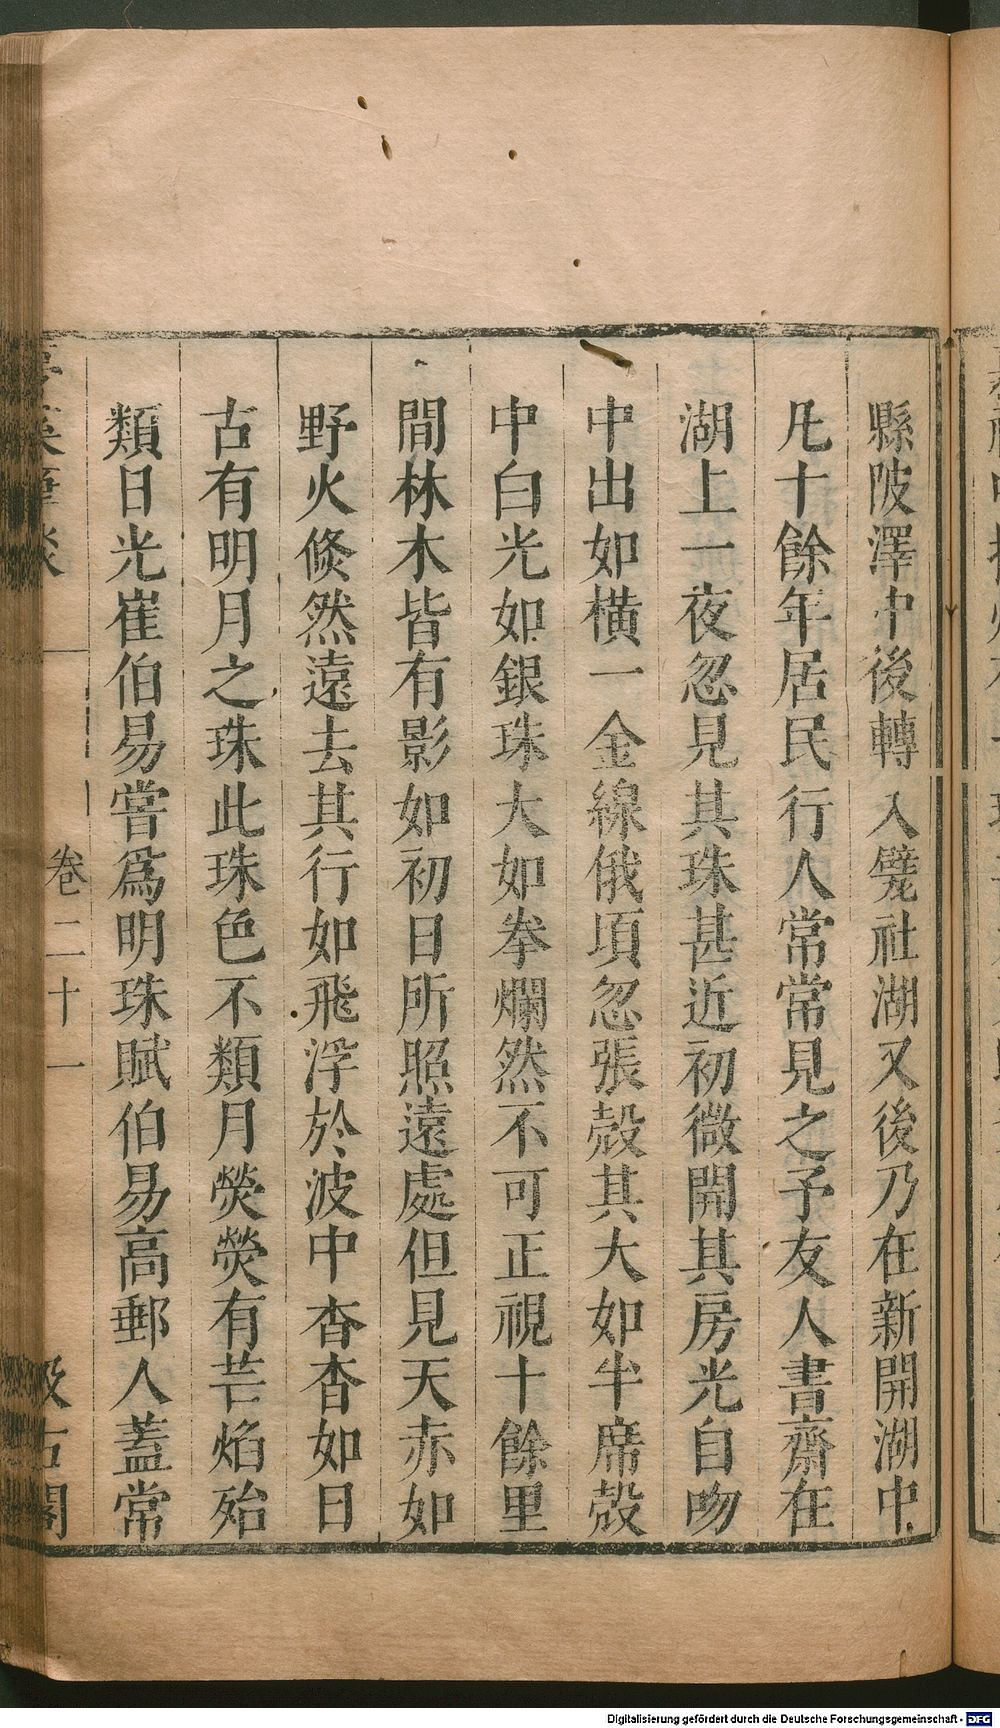 縣陂澤中後轉入甓社湖又後乃在新開湖中
凡十餘年居民行人常常見之予友人書齋在
湖上一夜忽見其珠甚近初微開其房光自吻
中出如橫一金線俄項忽張殻其大如半席殻
中白光如銀珠大如拳爛然不可正視十餘里
間林木皆有影如初日所照遠處但見天赤如
野火倐然遠去其行如飛浮於波中杳杳如日
古有明月之珠此珠色不類月熒熒有芒焰殆
類日光崔伯易嘗爲明珠賦伯易高郵人蓋常
卷二十一
汲古閣
Digitalisierung gefördert durch die Deutsche Forschungsgemeinschaft - DFG